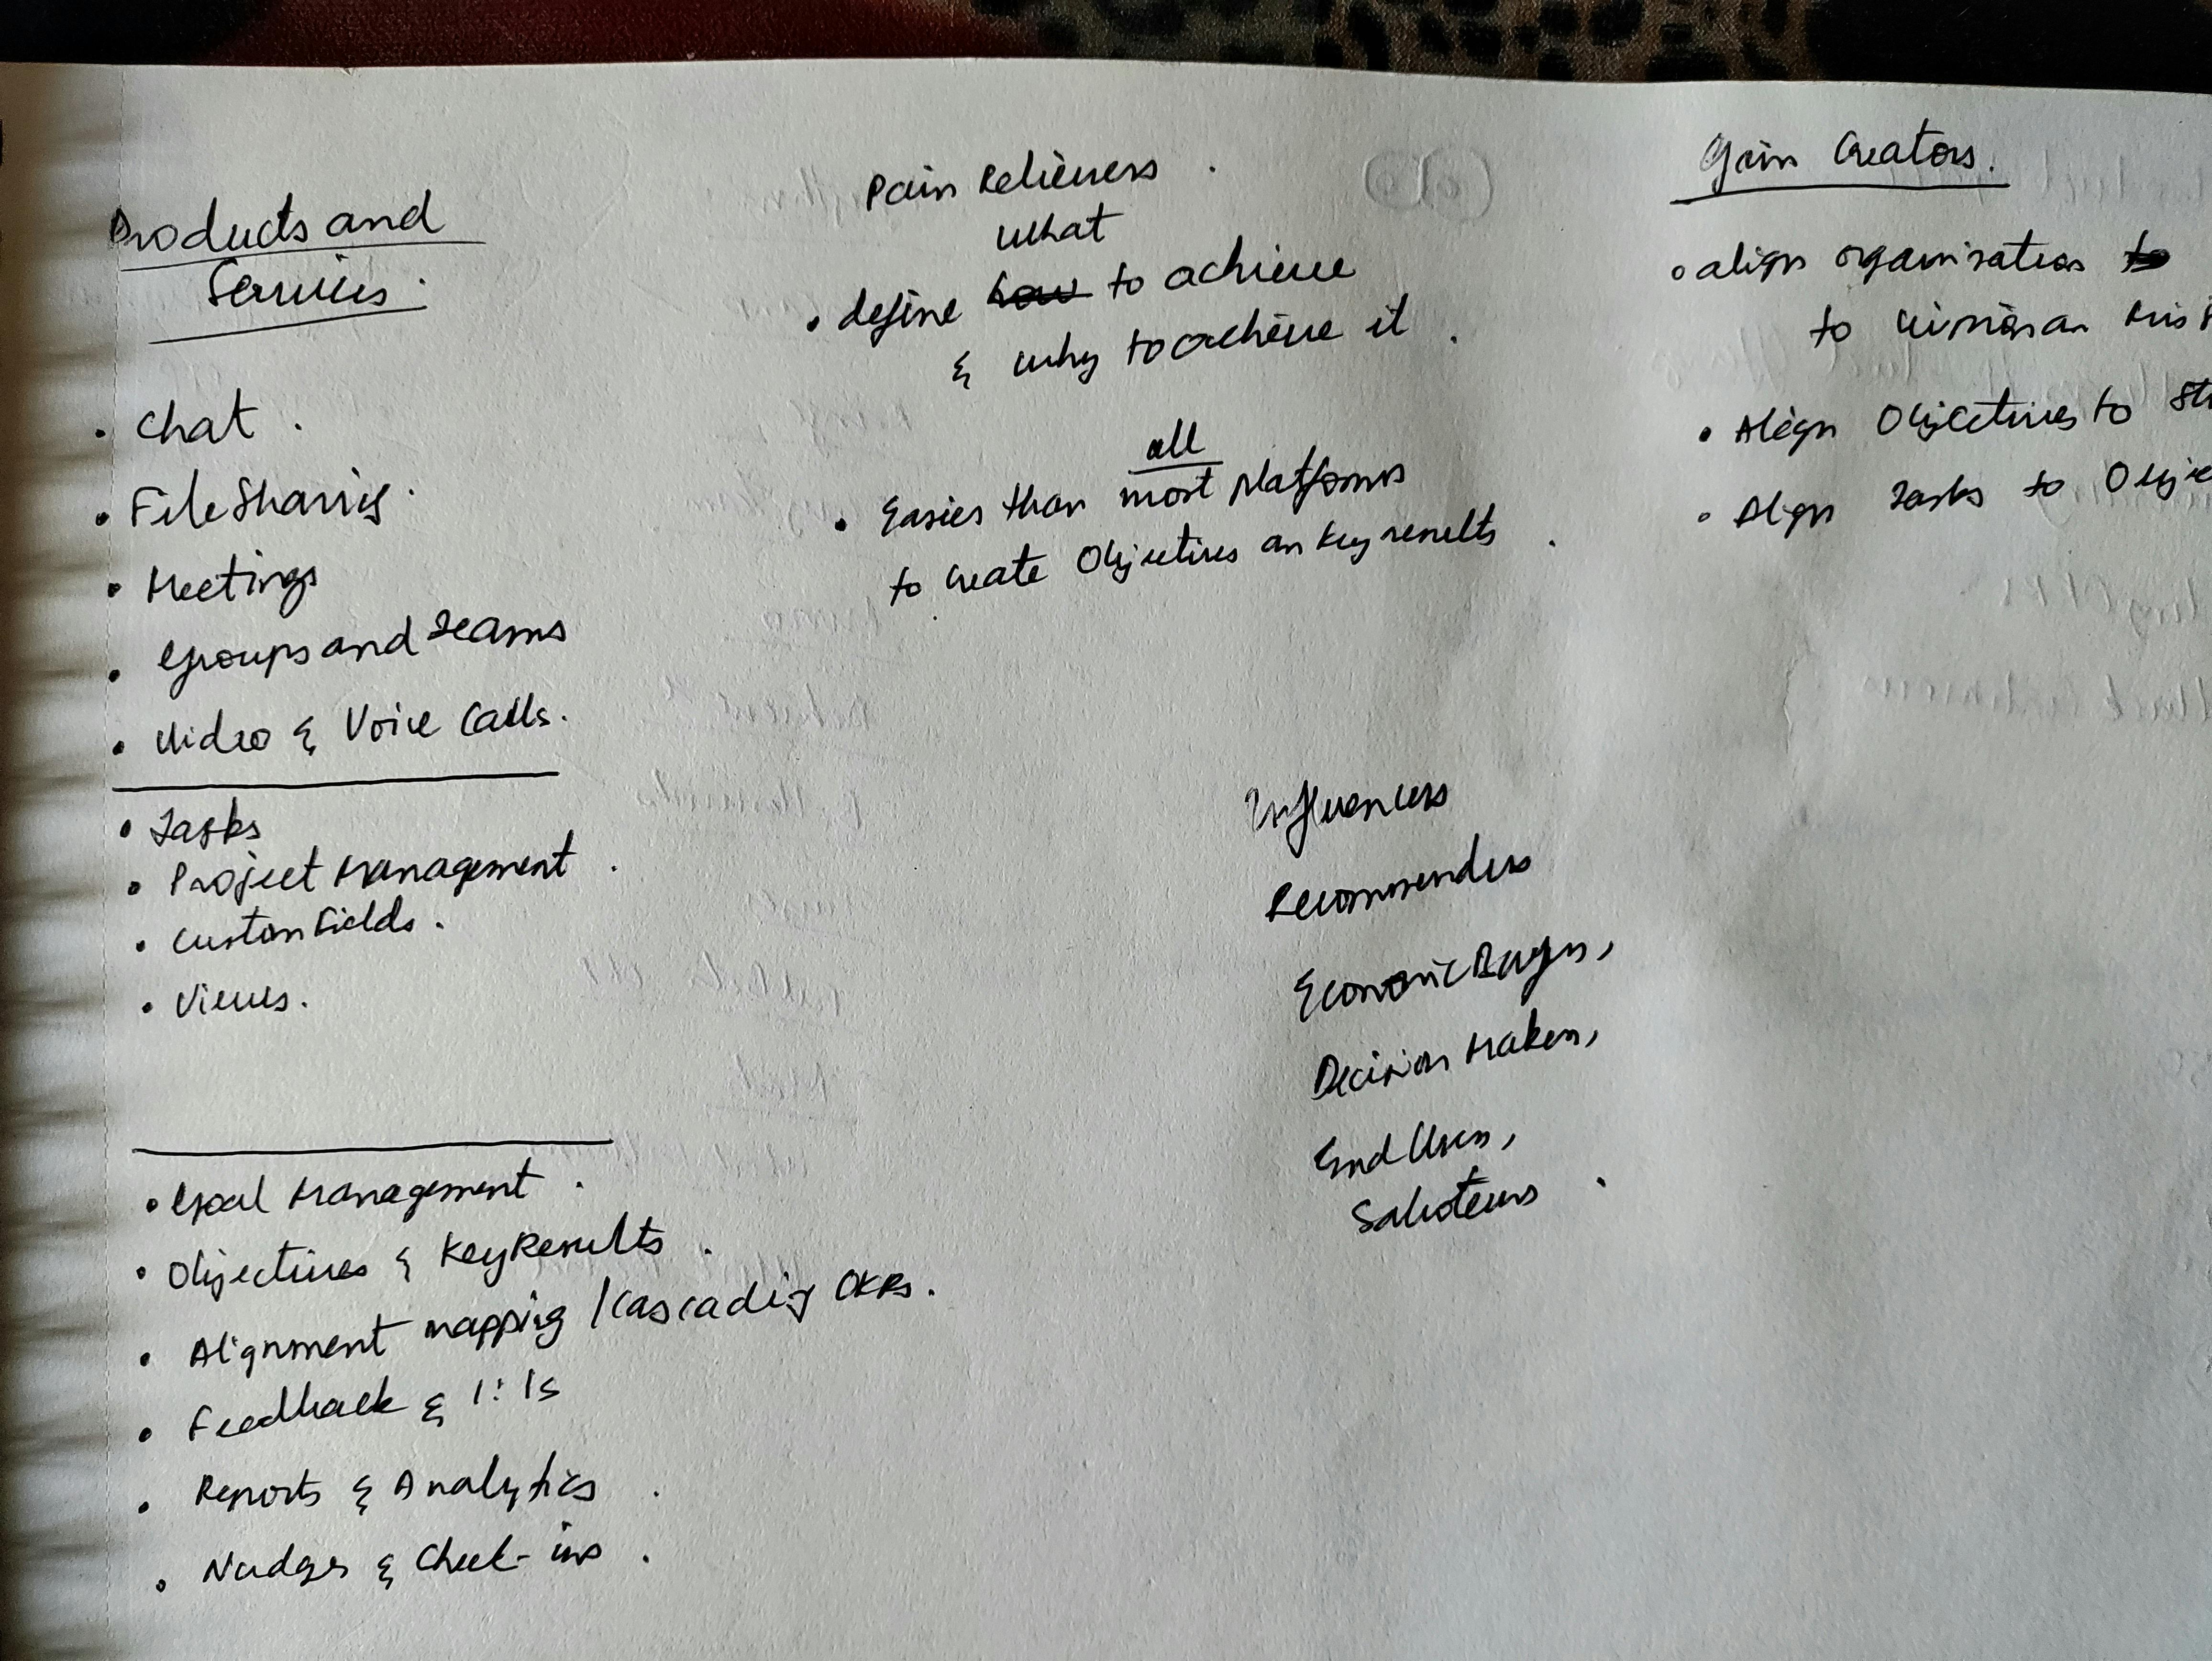 Products and
Services.
• Chat.
• File Sharing.
• Meetings
• Groups and Teams
• Video & Voice Calls.
• Tasks
• Project Management.
• Custom Fields.
• Views.
• Goal Management.
• Objectives & Key Results.
• Alignment mapping / Cascading OKRs.
• Feedback & 1:1s
• Reports & Analytics.
• Nudges & Check-ins.
Pain Relievers.
what
• define how to achieve
& why to achieve it.
all
• Easier than most platforms
to create Objectives an key results.
Influencers
Recommenders
Economic Buyers,
Decision Makers,
End Users,
Saboteurs.
Gain Creators.
• align organisation to
to
• Align Objectives to
• Align Tasks to